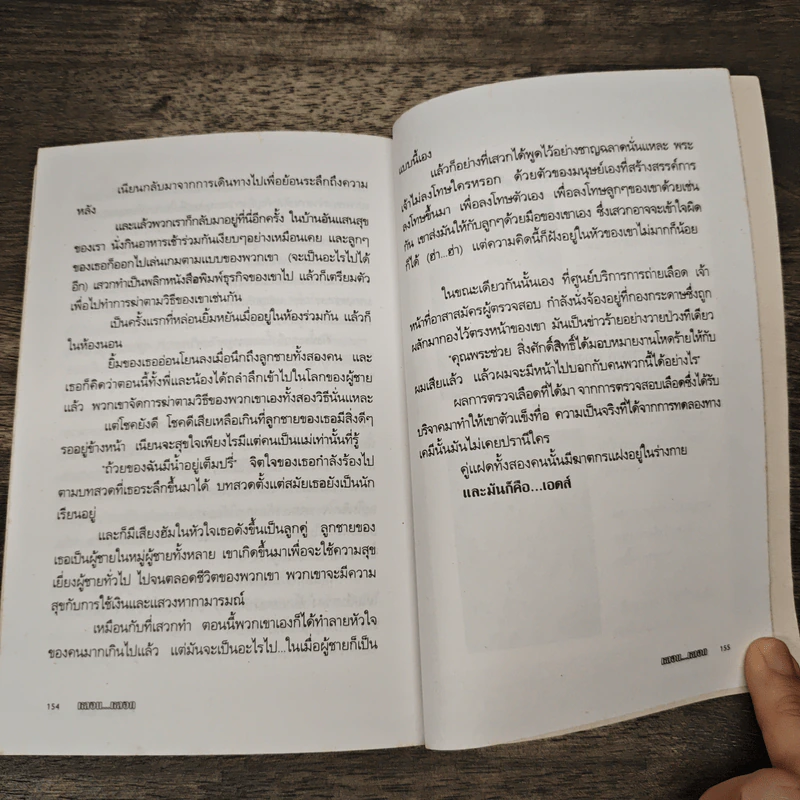 เนียนกลับมาจากการเดินทางไปเพื่อย้อนระลึกถึงความ
หลัง
และแล้วพวกเราก็กลับมาอยู่ที่นี่อีกครั้ง ในบ้านอันแสนสุข
ของเรา นั่งกินอาหารเช้าร่วมกันเงียบๆอย่างเหมือนเคย และลูกๆ
ของเธอก็ออกไปเล่นเกมตามแบบของพวกเขา (จะเป็นอะไรไปได้
อีก) เสวกทำเป็นพลิกหนังสือพิมพ์ธุรกิจของเขาไป แล้วก็เตรียมตัว
เพื่อไปทำการฆ่าตามวิธีของเขาเช่นกัน
เป็นครั้งแรกที่หล่อนยิ้มหยันเมื่ออยู่ในห้องร่วมกัน แล้วก็
ในห้องนอน
ยิ้มของเธออ่อนโยนลงเมื่อนึกถึงลูกชายทั้งสองคน และ
เธอก็คิดว่าตอนนี้ทั้งพี่และน้องได้ถลำลึกเข้าไปในโลกของผู้ชาย
แล้ว พวกเขาจัดการฆ่าตามวิธีของพวกเขาเองทั้งสองวิธีนั่นแหละ
แต่โชคยังดี โชคดีเสียเหลือเกินที่ลูกชายของเธอมีสิ่งดีๆ
รออยู่ข้างหน้า เนียนจะสุขใจเพียงไรมีแต่คนเป็นแม่เท่านั้นที่รู้
"ถ้วยของฉันมีน้ำอยู่เต็มปรี่" จิตใจของเธอกำลังร้องไป
ตามบทสวดที่เธอระลึกขึ้นมาได้ บทสวดตั้งแต่สมัยเธอยังเป็นนัก
เรียนอยู่
และก็มีเสียงฮัมในหัวใจเธอดังขึ้นเป็นลูกคู่ ลูกชายของ
เธอเป็นผู้ชายในหมู่ผู้ชายทั้งหลาย เขาเกิดขึ้นมาเพื่อจะใช้ความสุข
เยี่ยงผู้ชายทั่วไป ไปจนตลอดชีวิตของพวกเขา พวกเขาจะมีความ
สุขกับการใช้เงินและแสวงหากามารมณ์
เหมือนกับที่เสวกทำ ตอนนี้พวกเขาเองก็ได้ทำลายหัวใจ
ของคนมากเกินไปแล้ว แต่มันจะเป็นอะไรไป...ในเมื่อผู้ชายก็เป็น
154 หลอน...หลอน
แบบนี้เอง
แล้วก็อย่างที่เสวกได้พูดไว้อย่างชาญฉลาดนั่นแหละ พระ
เจ้าไม่ลงโทษใครหรอก ด้วยตัวของมนุษย์เองที่สร้างสรรค์การ
ลงโทษขึ้นมา เพื่อลงโทษตัวเอง เพื่อลงโทษลูกๆของเขาด้วยเช่น
กัน เขาส่งมันให้กับลูกๆด้วยมือของเขาเอง ซึ่งเสวกอาจจะเข้าใจผิด
ก็ได้ (ฮ่า...ฮ่า) แต่ความคิดนี้ก็ฝังอยู่ในหัวของเขาไม่มากก็น้อย
ในขณะเดียวกันนั้นเอง ที่ศูนย์บริการการถ่ายเลือด เจ้า
หน้าที่อาสาสมัครผู้ตรวจสอบ กำลังนั่งจ้องอยู่ที่กองกระดาษซึ่งถูก
ผลักมากองไว้ตรงหน้าของเขา มันเป็นข่าวร้ายอย่างวายป่วงทีเดียว
"คุณพระช่วย สิ่งศักดิ์สิทธิ์ได้มอบหมายงานโหดร้ายให้กับ
ผมเสียแล้ว แล้วผมจะมีหน้าไปบอกกับคนพวกนี้ได้อย่างไร"
ผลการตรวจเลือดที่ได้มา จากการตรวจสอบเลือดซึ่งได้รับ
บริจาคมาทำให้เขาตัวแข็งทื่อ ความเป็นจริงที่ได้จากการทดลองทาง
เคมีนั้นมันไม่เคยปรานีใคร
คู่แฝดทั้งสองคนนั้นมีฆาตกรแฝงอยู่ในร่างกาย
และมันก็คือ...เอดส์
หลอน...หลอน 155